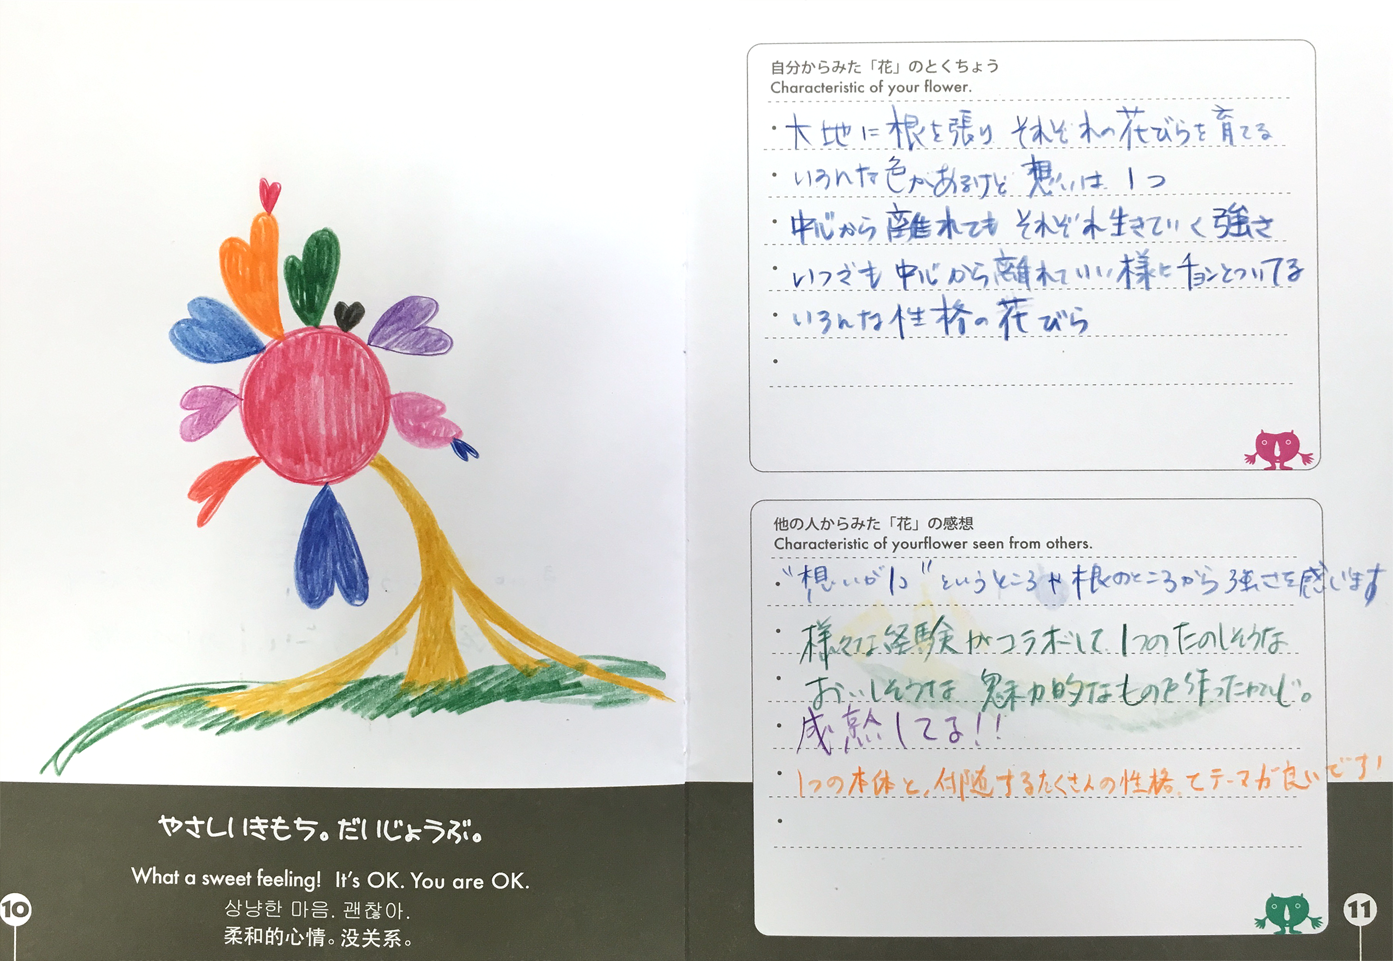 やさしいきもち。だいじょうぶ。
What a sweet feeling! It's OK. You are OK.
상냥한 마음. 괜찮아.
柔和的心情。没关系。
10
自分からみた「花」のとくちょう
Characteristic of your flower.
・大地に根を張り それぞれの花びらを育てる
・いろんな色があるけど 想いは 1つ
・中心から離れても それぞれ生きていく強さ
・いつでも中心から離れていい様にチョンとついてる
・いろんな性格の花びら
・
他の人からみた「花」の感想
Characteristic of yourflower seen from others.
・"想いが1つ"というところや根のところから強さを感じます
・様々な経験がコラボして 1つのたのしそうな
・おいしそうな 魅力的なものを作ったかんじ。
・成熟してる!!
・1つの本体と、付随するたくさんの性格、てテーマが良いです!
・
11